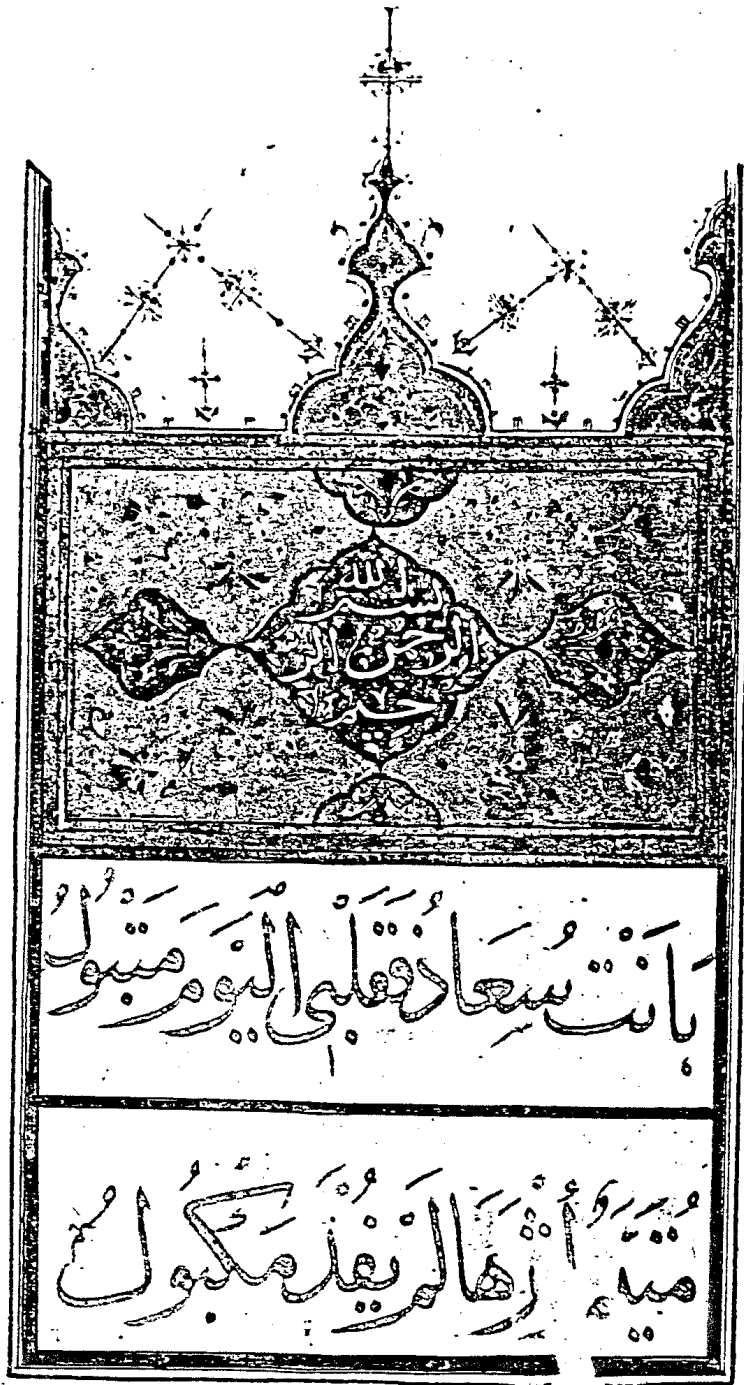 بسم الله
الرحمن الر
حيم
بَانَتْ سُعَادُ فَقَلْبِي الْيَوْمَ مَتْبُولُ
مُتَيَّمٌ أثْرَهَا لَمْ يُفْدَ مَكْبُولُ